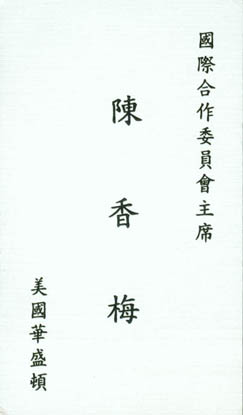 國際合作委員會主席
陳香梅
美國華盛頓